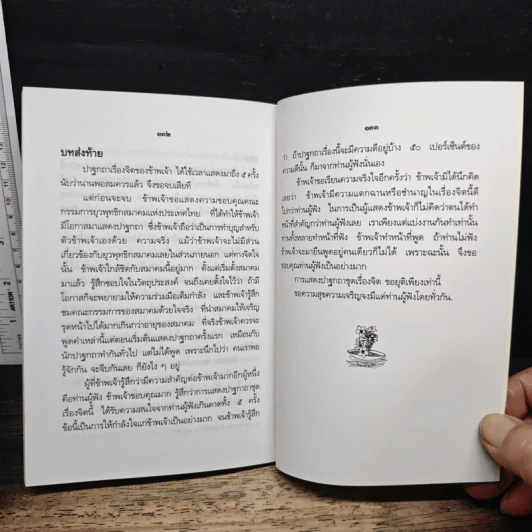 ๑๓๒
บทส่งท้าย
ปาฐกถาเรื่องจิตของข้าพเจ้า ได้ใช้เวลาแสดงมาถึง ๕ ครั้ง
นับว่านานพอสมควรแล้ว จึงขอจบเสียที
แต่ก่อนจะจบ ข้าพเจ้าขอแสดงความขอบคุณคณะ
กรรมการยุวพุทธิกสมาคมแห่งประเทศไทย ที่ได้ให้ข้าพเจ้า
มีโอกาสมาแสดงปาฐกถา ซึ่งข้าพเจ้าถือว่าเป็นการทำบุญสำหรับ
ตัวข้าพเจ้าเองด้วย ความจริง แม้ว่าข้าพเจ้าจะไม่มีส่วน
เกี่ยวข้องกับยุวพุทธิกสมาคมเลยในส่วนภายนอก แต่ทางจิตใจ
นั้น ข้าพเจ้าใกล้ชิดกับสมาคมนี้อยู่มาก ตั้งแต่เริ่มตั้งสมาคม
มาแล้ว รู้สึกชอบใจในวัตถุประสงค์ จนถึงเคยตั้งใจไว้ว่า ถ้ามี
โอกาสก็จะพยายามให้ความร่วมมือเต็มกำลัง และข้าพเจ้ารู้สึก
ชมคณะกรรมการของสมาคมด้วยใจจริง ที่นำสมาคมให้เจริญ
รุดหน้าไปได้มากเกินกว่าอายุของสมาคม ที่จริงข้าพเจ้าควรจะ
พูดคำเหล่านี้แต่ตอนเริ่มต้นแสดงปาฐกถาครั้งแรก เหมือนกับ
นักปาฐกถาทำกันทั่วไป แต่ไม่ได้พูด เพราะนึกไปว่า คนเราพอ
รู้จักกัน จะจีบกันเลย ก็ยังไง ๆ อยู่
ผู้ที่ข้าพเจ้ารู้สึกว่ามีความสำคัญต่อข้าพเจ้ามากอีกผู้หนึ่ง
คือท่านผู้ฟัง ข้าพเจ้าขอบคุณมาก รู้สึกว่าการแสดงปาฐกถาชุด
เรื่องจิตนี้ ได้รับความสนใจจากท่านผู้ฟังเกินคาดทั้ง ๕ ครั้ง
ข้อนี้เป็นการให้กำลังใจแก่ข้าพเจ้าเป็นอย่างมาก จนข้าพเจ้ารู้สึก
๑๓๓
ว่า ถ้าปาฐกถาเรื่องนี้จะมีความดีอยู่บ้าง ๕๐ เปอร์เซ็นต์ของ
ความดีนั้น ก็มาจากท่านผู้ฟังนั่นเอง
ข้าพเจ้าขอเรียนความจริงใจอีกครั้งว่า ข้าพเจ้ามิได้นึกคิด
เลยว่า ข้าพเจ้ามีความแตกฉานหรือชำนาญในเรื่องจิตนี้ดี
ไปกว่าท่านผู้ฟัง ในการเป็นผู้แสดงข้าพเจ้าก็ไม่คิดว่าตนได้ทำ
หน้าที่สำคัญกว่าท่านผู้ฟังเลย เราเพียงแต่แบ่งงานกันทำเท่านั้น
ท่านทั้งหลายทำหน้าที่ฟัง ข้าพเจ้าทำหน้าที่พูด ถ้าท่านไม่ฟัง
ข้าพเจ้าจะมายืนพูดอยู่คนเดียวก็ไม่ได้ เพราะฉะนั้น จึงขอ
ขอบคุณท่านผู้ฟังเป็นอย่างมาก
การแสดงปาฐกถาชุดเรื่องจิต ขอยุติเพียงเท่านี้
ขอความสุขความเจริญจงมีแด่ท่านผู้ฟังโดยทั่วกัน.